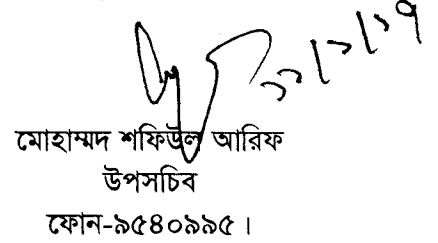 ২২/১/১৭
মোহাম্মদ শফিউল আরিফ
উপসচিব
ফোন-৯৫৪০৯৯৫।